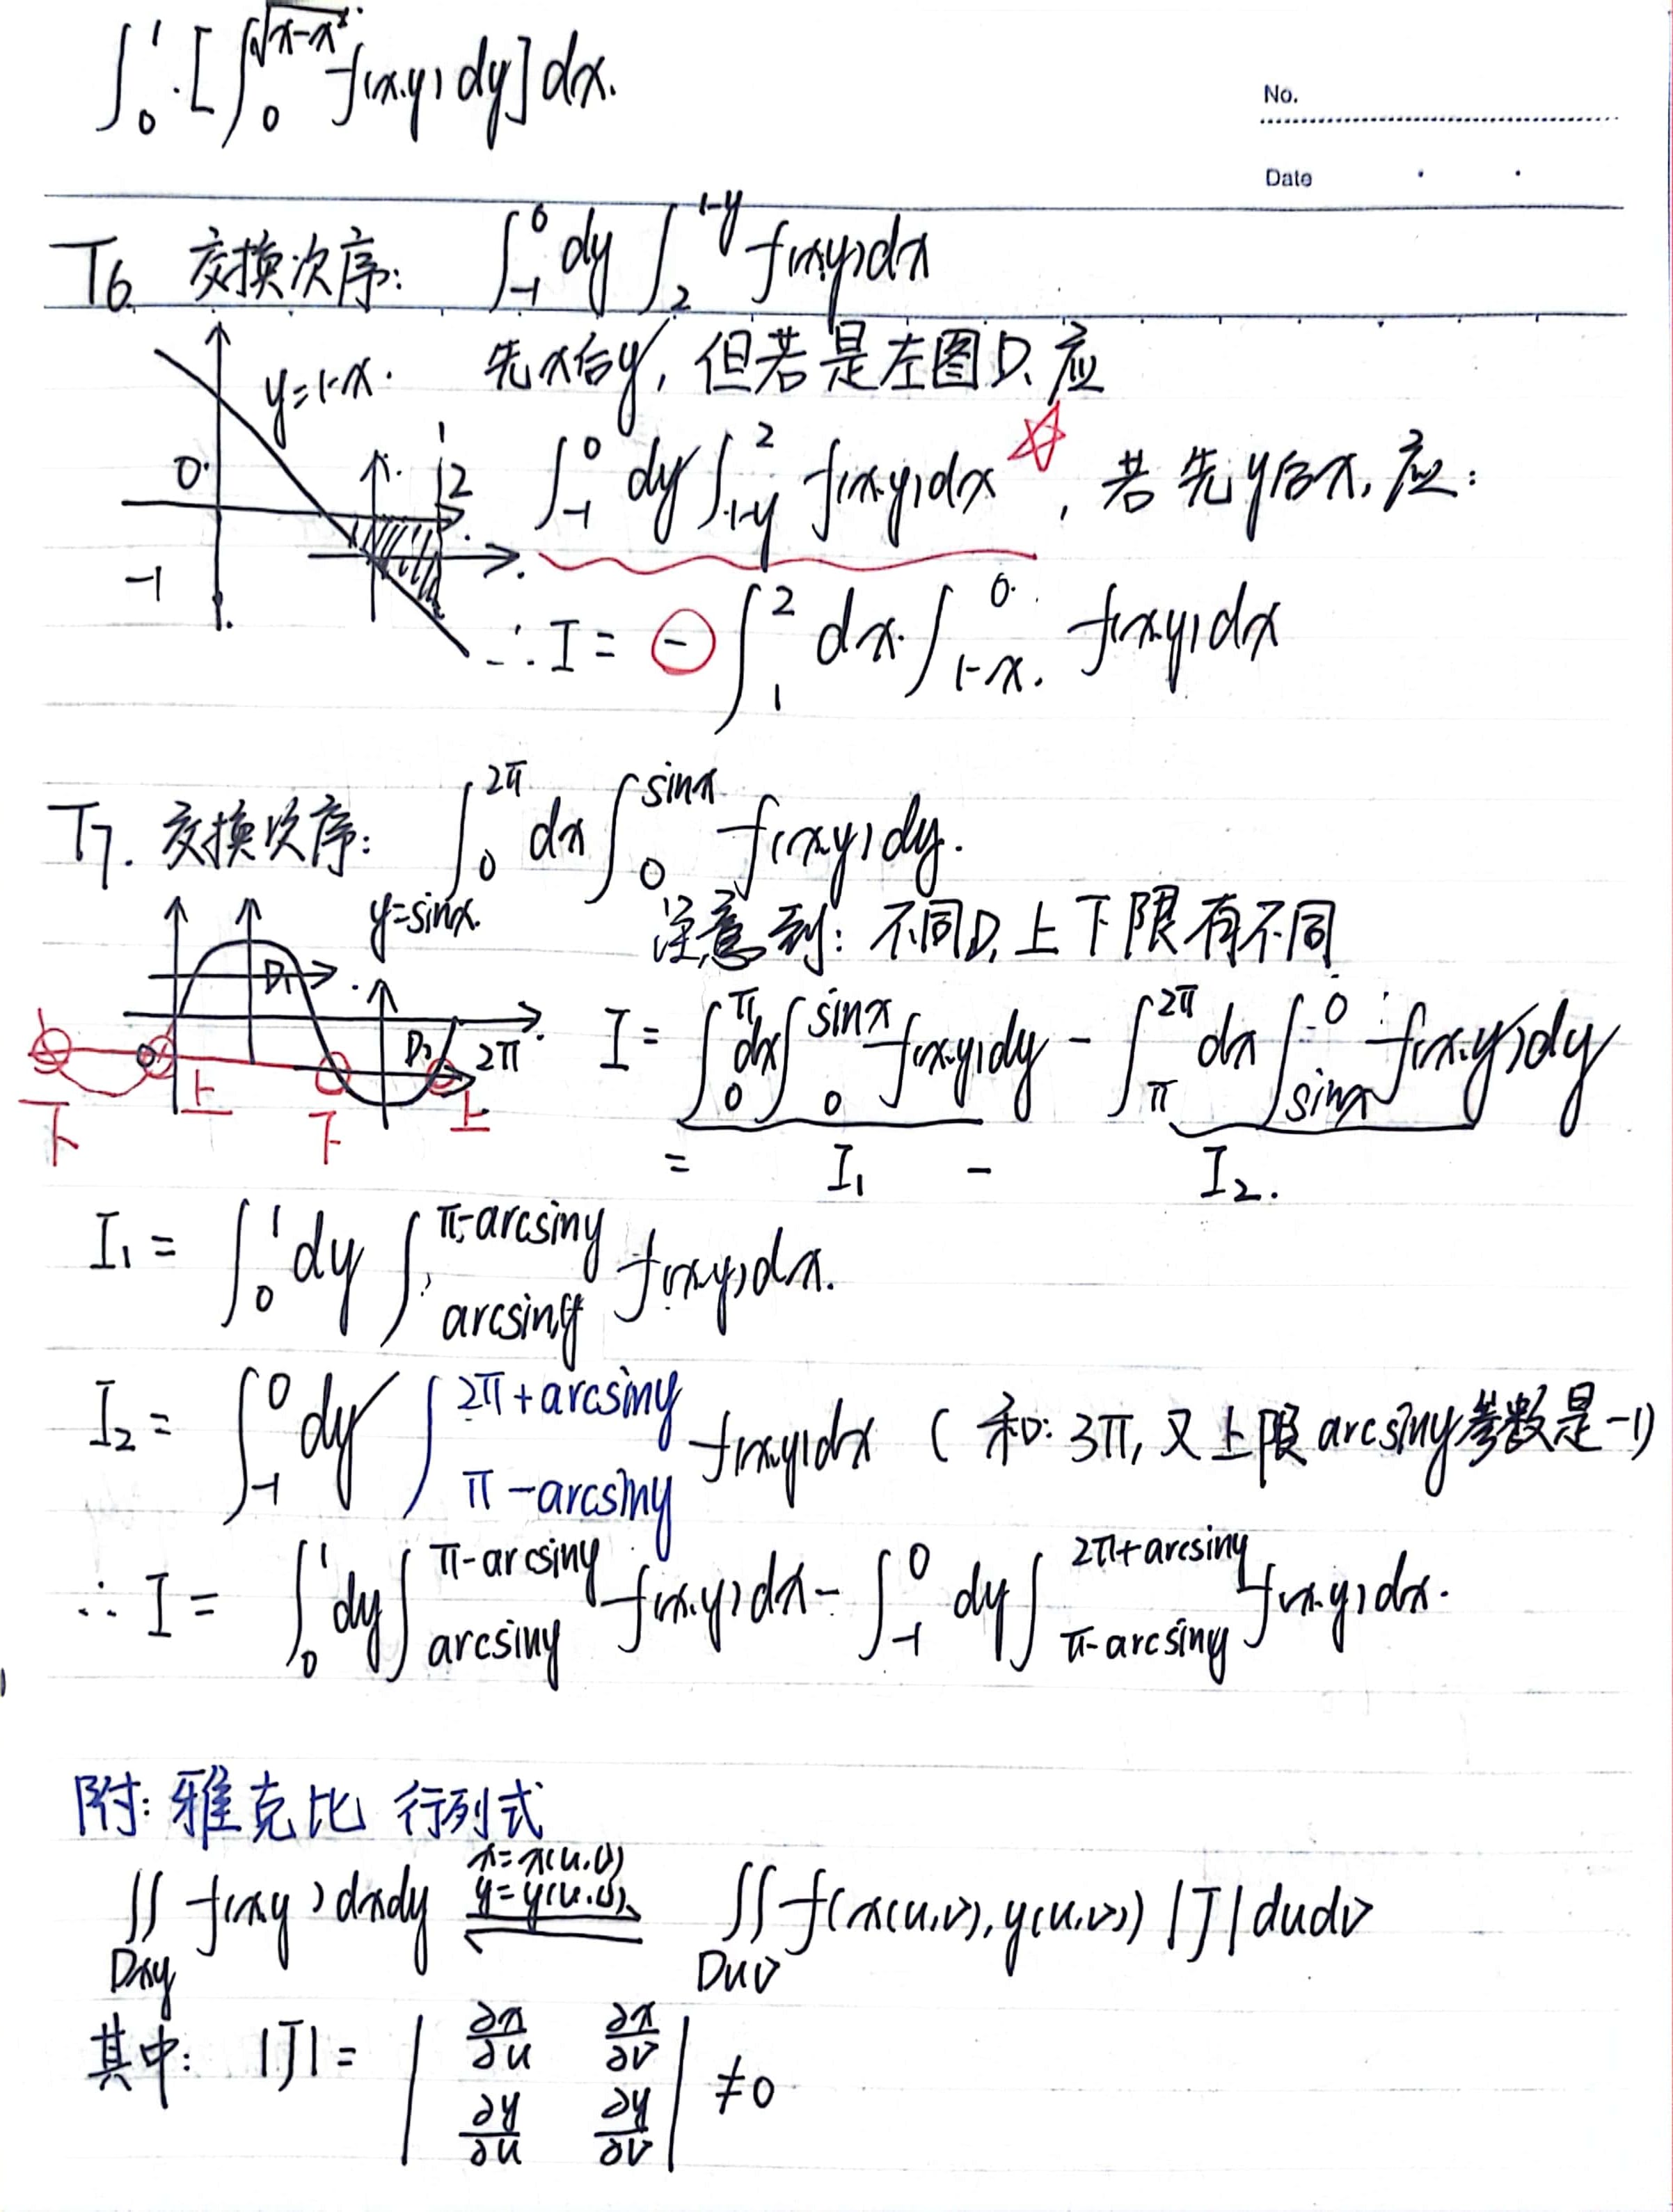 ∫₀¹ [∫₀^{√(x-x²)} f(x,y) dy] dx.
No.
Date
T6. 交换次序: ∫₋₁⁰ dy ∫₂^{1-y} f(x,y)dx
y=1-x. 先x后y, 但若是左图D, 应
0 2 -1
∫₋₁⁰ dy ∫_{1-y}² f(x,y)dx ☆, 若先y后x, 应:
∴ I = ⊖ ∫₁² dx ∫_{1-x}⁰ f(x,y)dx
T7. 交换次序: ∫₀^{2π} dx ∫₀^{sinx} f(x,y)dy.
y=sinx. 注意到: 不同D, 上下限有不同
D₁ D₂ 0 2π
下 上 下 上
I = ∫₀^π dx ∫₀^{sinx} f(x,y)dy - ∫_π^{2π} dx ∫_{sinx}⁰ f(x,y)dy
= I₁ - I₂.
I₁ = ∫₀¹ dy ∫_{arcsiny}^{π-arcsiny} f(x,y)dx.
I₂ = ∫₋₁⁰ dy ∫_{π-arcsiny}^{2π+arcsiny} f(x,y)dx (和: 3π, 又上限arcsiny参数是-1)
∴ I = ∫₀¹ dy ∫_{arcsiny}^{π-arcsiny} f(x,y)dx - ∫₋₁⁰ dy ∫_{π-arcsiny}^{2π+arcsiny} f(x,y)dx.
附: 雅克比 行列式
x=x(u,v)
y=y(u,v)
∬_{Dxy} f(x,y)dxdy ⇌ ∬_{Duv} f(x(u,v),y(u,v)) |J| dudv
其中: |J| = | ∂x/∂u ∂x/∂v |
| ∂y/∂u ∂y/∂v | ≠0